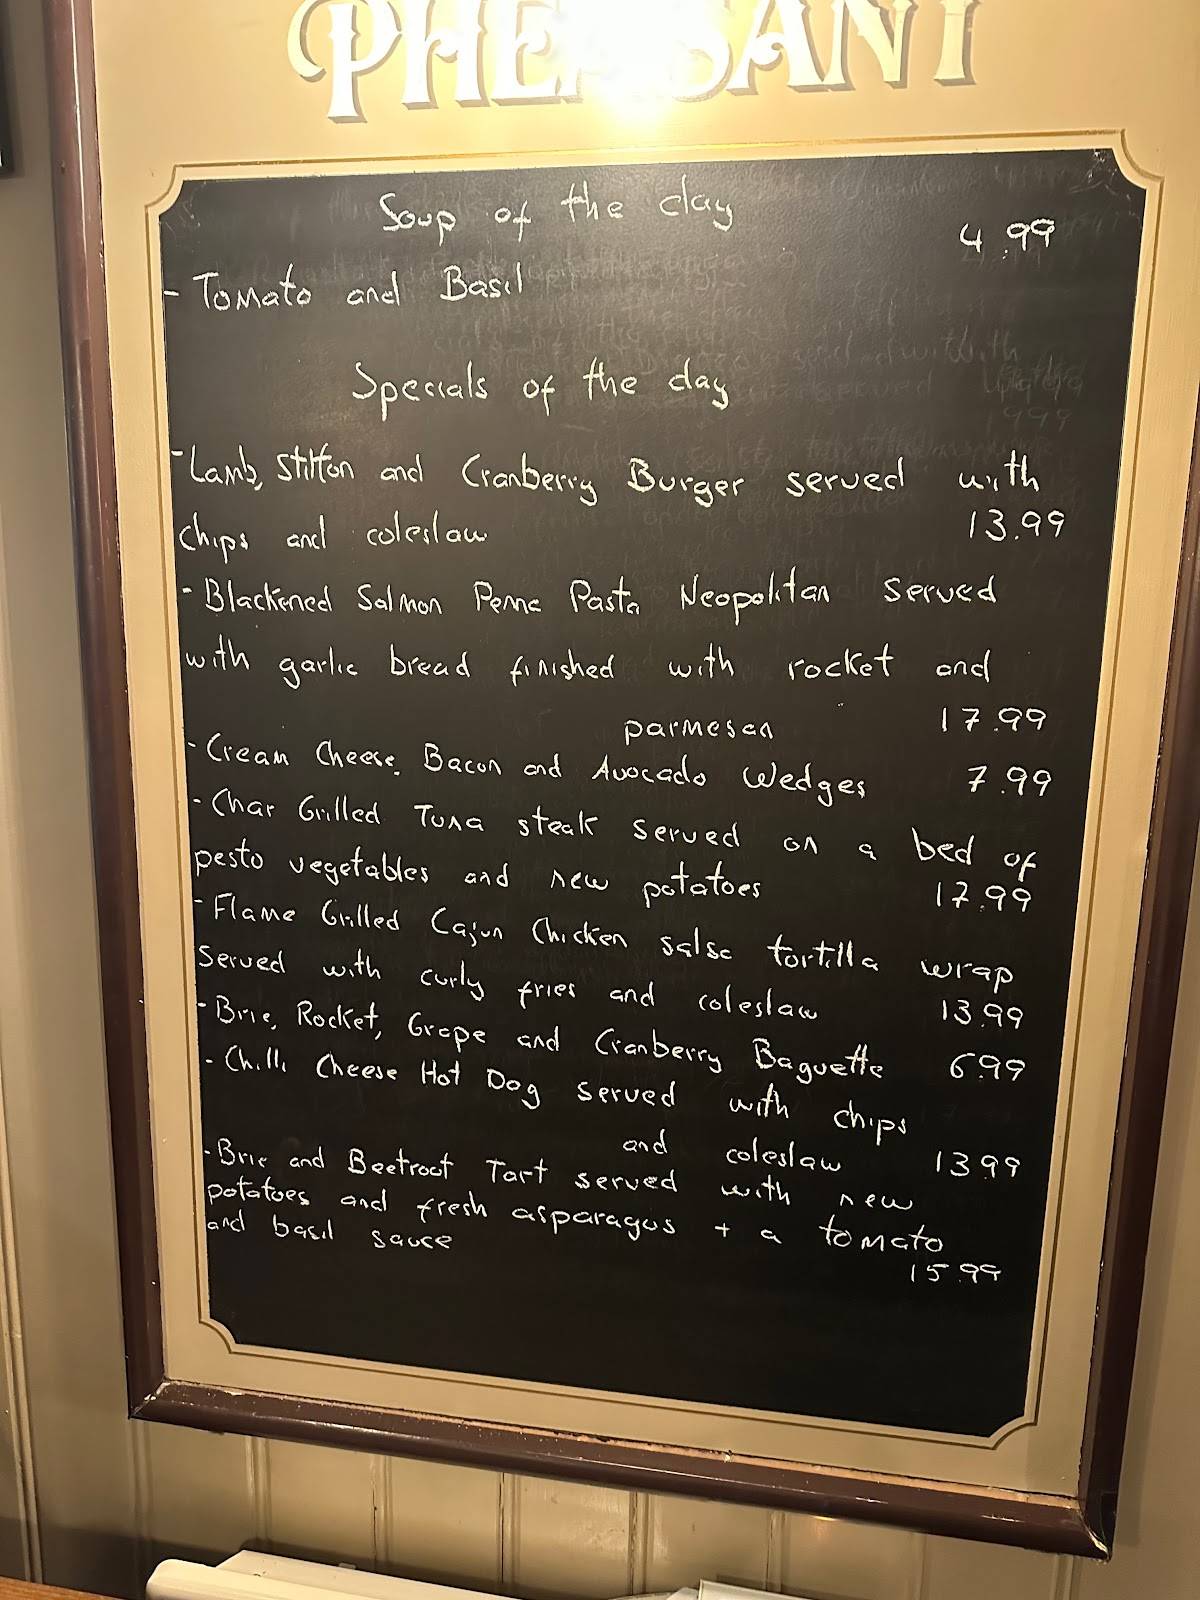 PHEASANT
Soup of the day
4.99
- Tomato and Basil
Specials of the day
- Lamb, Stilton and Cranberry Burger served with
chips and coleslaw 13.99
- Blackened Salmon Penne Pasta Neopolitan served
with garlic bread finished with rocket and
parmesan 17.99
- Cream Cheese, Bacon and Avocado Wedges 7.99
- Char Grilled Tuna steak served on a bed of
pesto vegetables and new potatoes 17.99
- Flame Grilled Cajun Chicken salsa tortilla wrap
served with curly fries and coleslaw 13.99
- Brie, Rocket, Grape and Cranberry Baguette 6.99
- Chilli Cheese Hot Dog served with chips
and coleslaw 13.99
- Brie and Beetroot Tart served with new
potatoes and fresh asparagus + a tomato
and basil sauce
15.99